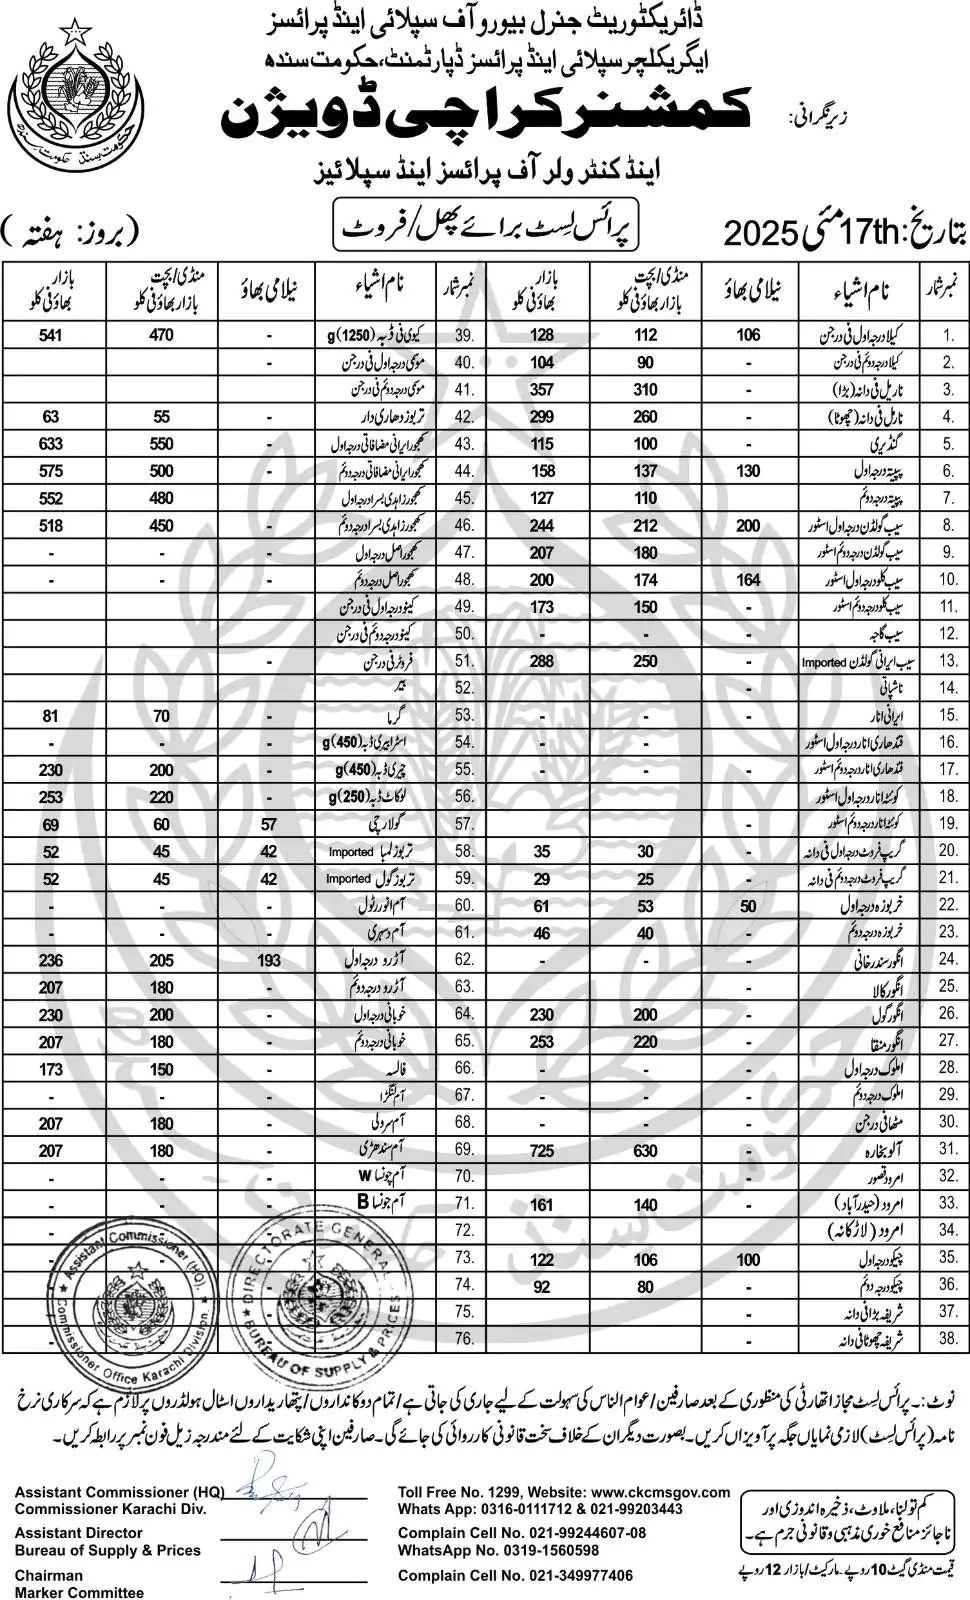 ڈائریکٹوریٹ جنرل بیورو آف سپلائی اینڈ پرائسز
ایگریکلچر سپلائی اینڈ پرائسز ڈپارٹمنٹ، حکومت سندھ
زیر نگرانی:
کمشنر کراچی ڈویژن
اینڈ کنٹرولر آف پرائسز اینڈ سپلائیز
بتاریخ: 17th مئی 2025
پرائس لسٹ برائے پھل/فروٹ
(بروز: ہفتہ)
نمبر شمار نام اشیاء نیلامی بھاؤ منڈی/بچت بازار بھاؤ فی کلو بازار بھاؤ فی کلو
1. کیلا درجہ اول فی درجن 106 112 128
2. کیلا درجہ دوئم فی درجن - 90 104
3. ناریل فی دانہ (بڑا) - 310 357
4. ناریل فی دانہ (چھوٹا) - 260 299
5. گنڈیری - 100 115
6. پپیتہ درجہ اول 130 137 158
7. پپیتہ درجہ دوئم 110 127
8. سیب گولڈن درجہ اول اسٹور 200 212 244
9. سیب گولڈن درجہ دوئم اسٹور - 180 207
10. سیب کلو درجہ اول اسٹور 164 174 200
11. سیب کلو درجہ دوئم اسٹور - 150 173
12. سیب گاجہ - - -
13. سیب ایرانی گولڈن Imported - 250 288
14. ناشپاتی -
15. ایرانی انار - - -
16. قندھاری انار درجہ اول اسٹور - - -
17. قندھاری انار درجہ دوئم اسٹور - - -
18. کوئٹہ انار درجہ اول اسٹور -
19. کوئٹہ انار درجہ دوئم اسٹور -
20. گریپ فروٹ درجہ اول فی دانہ - 30 35
21. گریپ فروٹ درجہ دوئم فی دانہ - 25 29
22. خربوزہ درجہ اول 50 53 61
23. خربوزہ درجہ دوئم - 40 46
24. انگور سندرخانی - - -
25. انگور کالا
26. انگور گول - 200 230
27. انگور منقا - 220 253
28. املوک درجہ اول - - -
29. املوک درجہ دوئم - - -
30. مٹھا فی درجن - - -
31. آلو بخارہ - 630 725
32. امرود قصور -
33. امرود (حیدرآباد) - 140 161
34. امرود (لاڑکانہ)
35. چیکو درجہ اول 100 106 122
36. چیکو درجہ دوئم - 80 92
37. شریفہ بڑا فی دانہ -
38. شریفہ چھوٹا فی دانہ -
39. کیوی فی ڈبہ (1250)g - 470 541
40. موسمی درجہ اول فی درجن -
41. موسمی درجہ دوئم فی درجن
42. تربوز دھاری دار - 55 63
43. کھجور ایرانی مضافاتی درجہ اول - 550 633
44. کھجور ایرانی مضافاتی درجہ دوئم - 500 575
45. کھجور زاہدی بسرا درجہ اول - 480 552
46. کھجور زاہدی بسرا درجہ دوئم - 450 518
47. کھجور اصل درجہ اول - - -
48. کھجور اصل درجہ دوئم - - -
49. کینو درجہ اول فی درجن -
50. کینو درجہ دوئم فی درجن
51. فروٹر فی درجن -
52. بیر
53. گرما - 70 81
54. اسٹرابیری ڈبہ (450)g - - -
55. چیری ڈبہ (450)g - 200 230
56. لوکاٹ ڈبہ (250)g - 220 253
57. گولارچی 57 60 69
58. تربوز لمبا Imported 42 45 52
59. تربوز گول Imported 42 45 52
60. آم انور رٹول - - -
61. آم دسہری - - -
62. آڑو درجہ اول 193 205 236
63. آڑو درجہ دوئم - 180 207
64. خوبانی درجہ اول - 200 230
65. خوبانی درجہ دوئم - 180 207
66. فالسہ - 150 173
67. آم لنگڑا - - -
68. آم سرولی - 180 207
69. آم سندھڑی - 180 207
70. آم چونسا W - - -
71. آم چونسا B - - -
72.
73.
74.
75.
76.
Assistant Commissioner (HQ)
Commissioner Office Karachi Division.
DIRECTORATE GENERAL
BUREAU OF SUPPLY & PRICES
نوٹ:۔ پرائس لسٹ مجاز اتھارٹی کی منظوری کے بعد صارفین/عوام الناس کی سہولت کے لیے جاری کی جاتی ہے/تمام دوکانداروں/پتھاریداروں اسٹال ہولڈروں پر لازم ہے کہ سرکاری نرخ
نامہ (پرائس لسٹ) لازمی نمایاں جگہ پر آویزاں کریں۔ بصورت دیگر ان کے خلاف سخت قانونی کارروائی کی جائے گی۔ صارفین اپنی شکایت کے لئے مندرجہ زیل فون نمبر پر رابطہ کریں۔
Assistant Commissioner (HQ)
Commissioner Karachi Div.
Assistant Director
Bureau of Supply & Prices
Chairman
Marker Committee
Toll Free No. 1299, Website: www.ckcmsgov.com
Whats App: 0316-0111712 & 021-99203443
Complain Cell No. 021-99244607-08
WhatsApp No. 0319-1560598
Complain Cell No. 021-349977406
کم تولنا، ملاوٹ، ذخیرہ اندوزی اور
ناجائز منافع خوری مذہبی و قانونی جرم ہے۔
قیمت منڈی گیٹ 10 روپے۔ مارکیٹ/بازار 12 روپے
حکومت سندھ